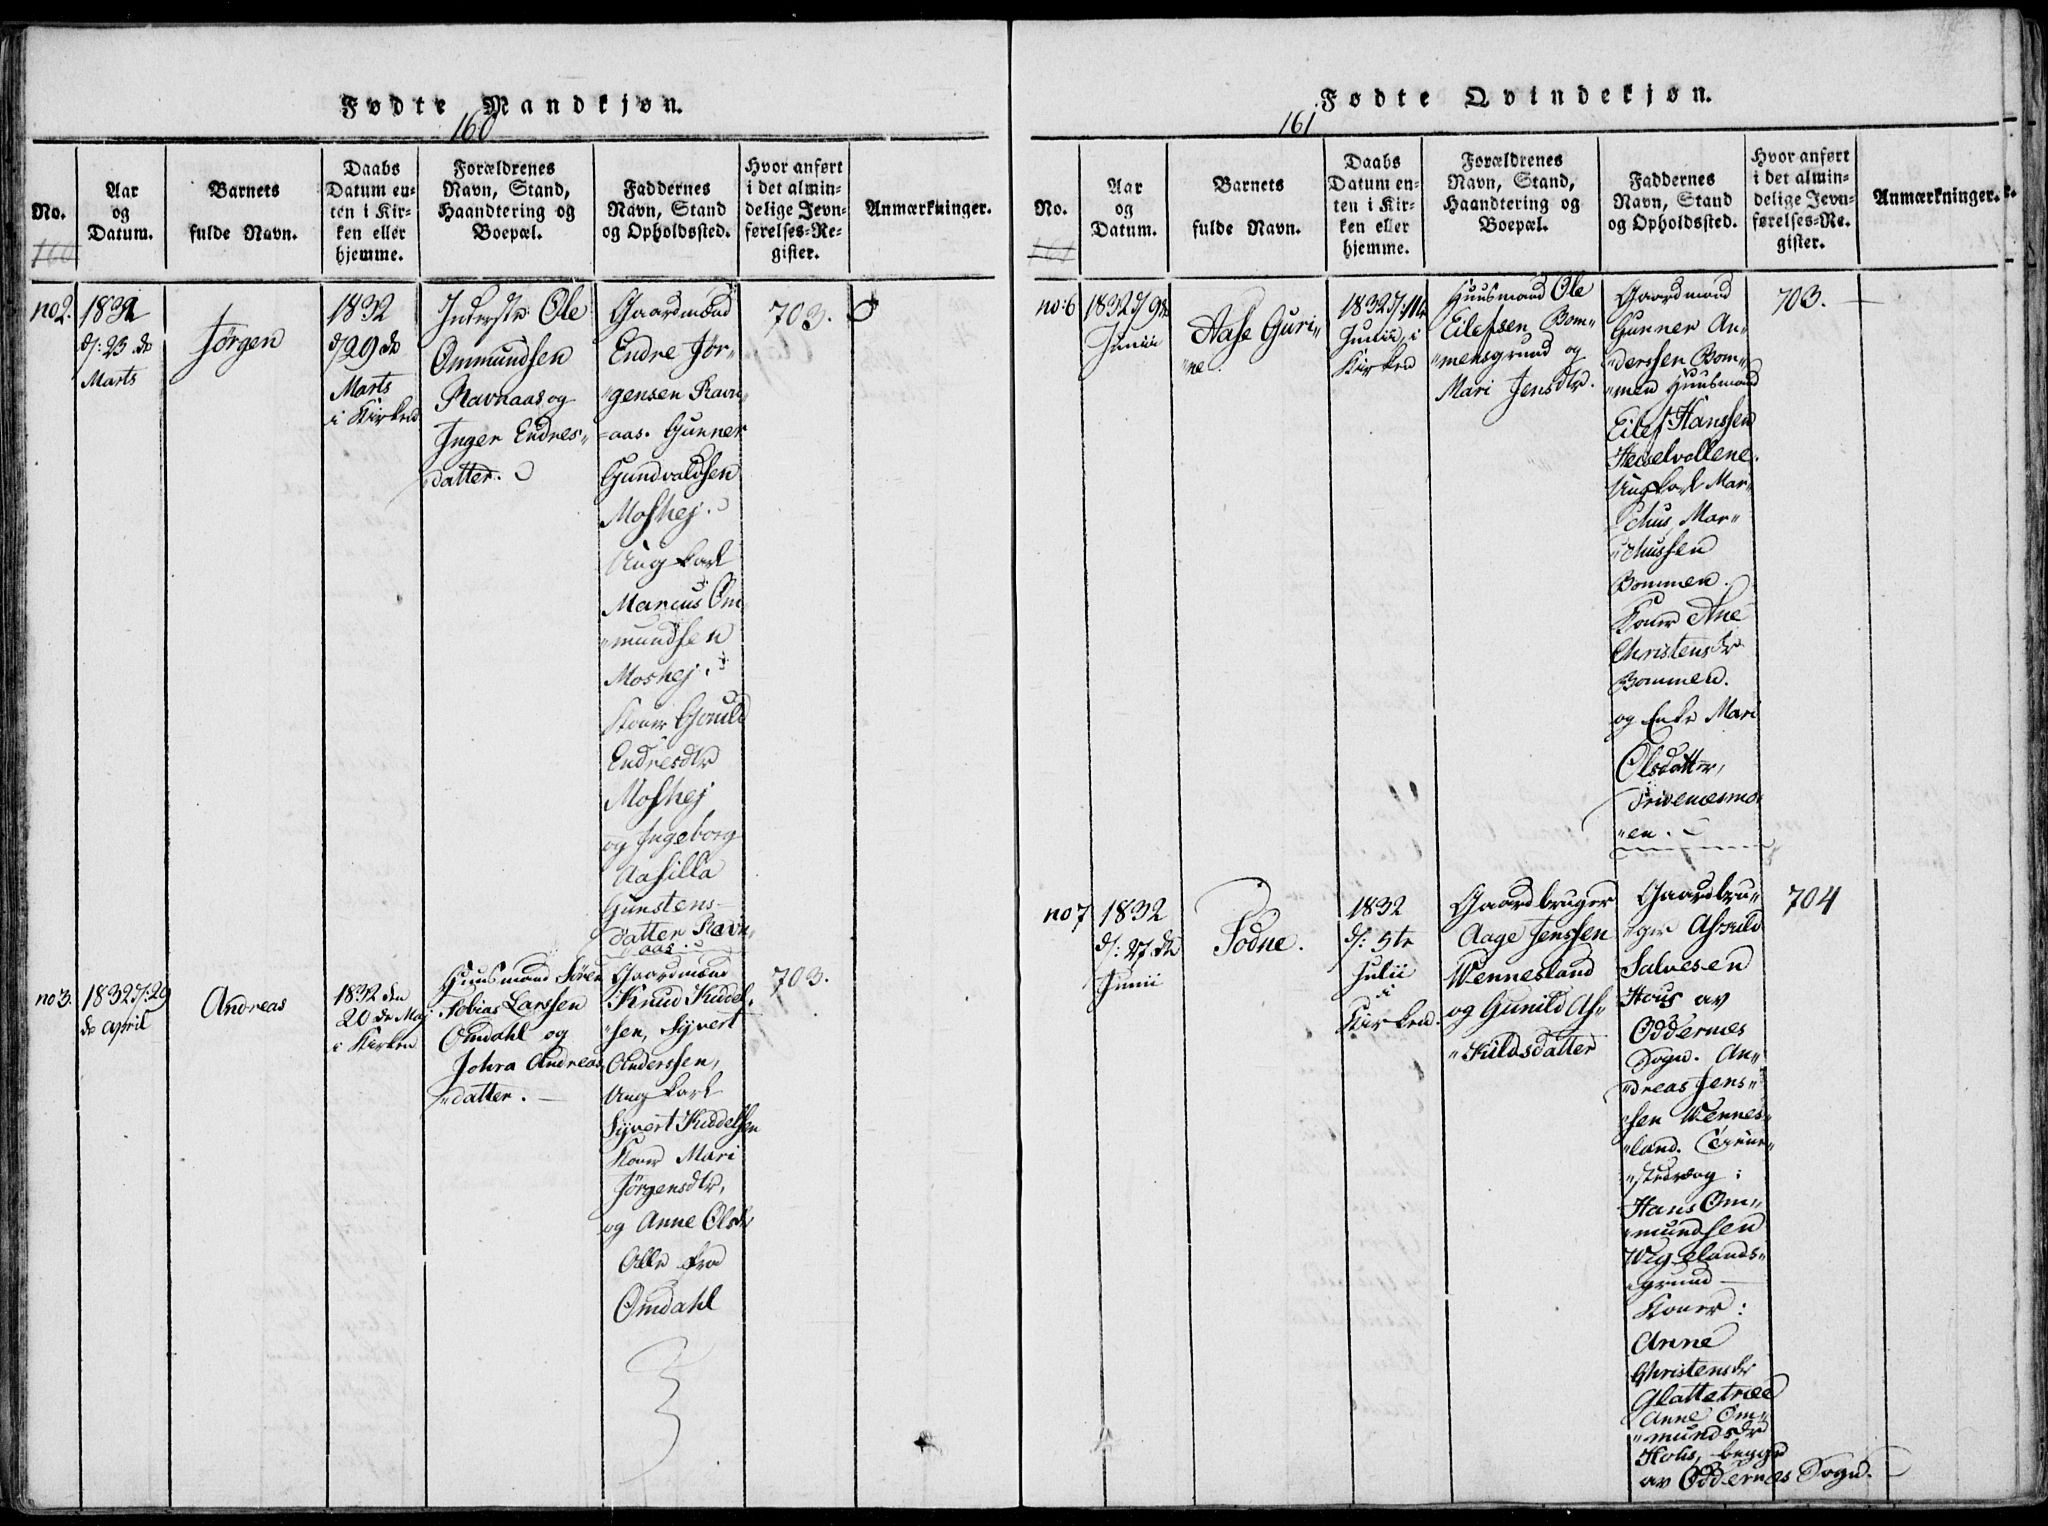 Fødte Mandkjøn.
160
No.
Aar
og
Datum.
Barnets
fulde Navn.
Daabs
Datum en-
ten i Kir-
ken eller
hjemme.
Forældrenes
Navn, Stand,
Haandtering og
Boepæl.
Faddernes
Navn, Stand
og Opholdssted.
Hvor anført
i det almin-
delige Jevn-
førelses-Re-
gister.
Anmærkninger.
160
no 2.
1832
d: 23 de
Marts
Jørgen
1832
d/29 de
Marts
i Kirken
Ole
Ommundsen
Ravnaas og
Inger Endres-
datter.
Gaardmænd
Endre Jør-
gensen Ravn-
aas. Gunner
Gundvaldsen
Moshej.
Ungkarl
Marcus Om-
mundsen
Moshej.
Koner Gonild
Endresdtr
Moshej
og Ingeborg
Aasilla
Gunstens-
datter Ravn-
aas.
703.
no 3.
1832 d: 29
de April
Andreas
1832 den
20 de Maj
i Kirken
Huusmand Sören
Tobias Larssen
Omdahl og
Johra Andreas
datter.
Gaardmænd
Knud Kiddel-
sen, Syvert
Anderssen,
Ungkarl
Syvert Kiddelsen
Koner Mari
Jörgensdtr,
og Anne Olsdr
Alle fra
Omdahl
703.
Fødte Qvindekjøn.
161
No.
Aar
og
Datum.
Barnets
fulde Navn.
Daabs
Datum en-
ten i Kir-
ken eller
hjemme.
Forældrenes
Navn, Stand,
Haandtering og
Boepæl.
Faddernes
Navn, Stand
og Opholdssted.
Hvor anført
i det almin-
delige Jevn-
førelses-Re-
gister.
Anmærkninger.
161
no: 6
1832 d/9de
Junii
Aase Guri-
ne
1832
Junii, i
Kirken
Huusmand Ole
Eilefsen Bom-
mensgrund og
Mari Jensdtr.
Gaardmand
Gunner An-
derssen Bom-
men Huusmand
Eilef Hanssen
Hesselvollene.
Ungkarl Mar-
chus Mar-
chussen
Bommen.
Koner Ane
Christensdr
Bommen.
og Enke Mari
Olsdatter,
en.
703.
no 7
1832
d: 27 de
Junii
Todne.
1832
d: 5te
Julii
i
Kirken.
Gaardbruger
Aage Jenssen
Wennesland
og Gunild As-
kildsdatter
Gaardbru-
ger Askild
Salvesen
Hous av
Oddernes
Sogn. An-
dreas Jens-
sen Wennes-
land.
Hans Om-
mundsen
Wigelands-
grund
Koner:
Anne
Christensdr
Glattetræe
Anne Om-
mundsdr
Hous, begge
av Oddernes Sogn.
704